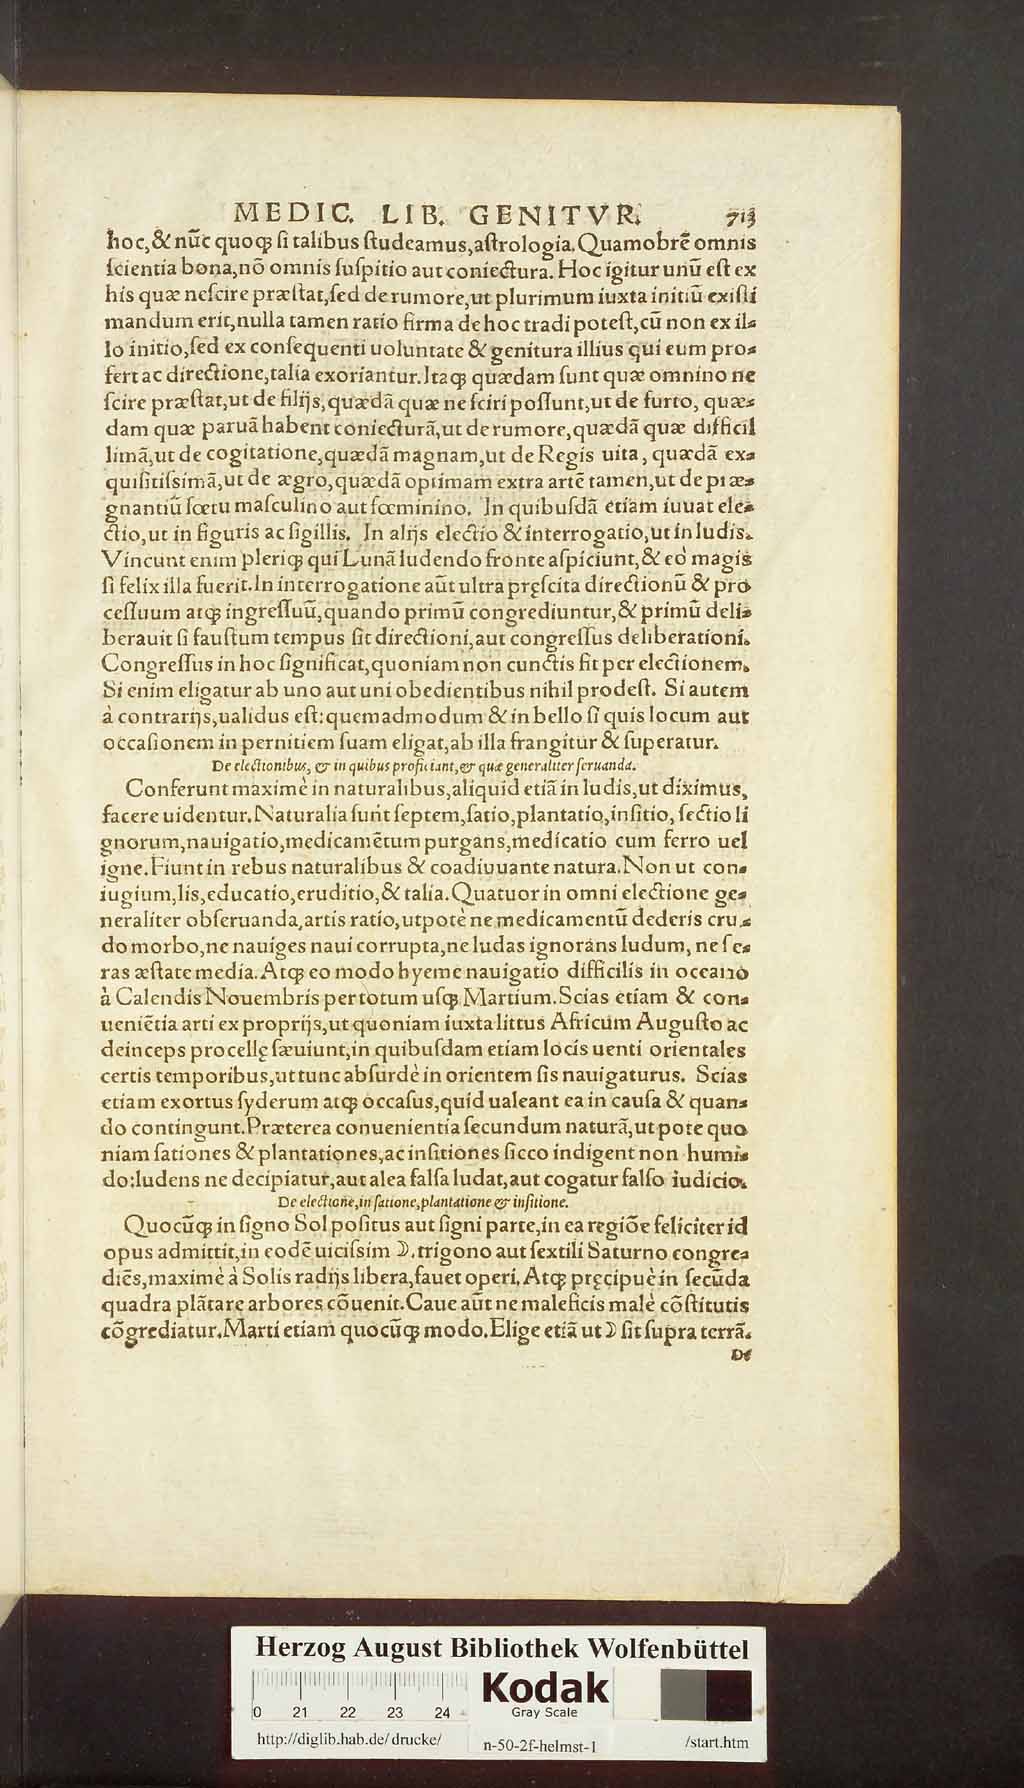 MEDIC. LIB. GENITVR. 713
hoc, & nũc quoq; ſi talibus ſtudeamus, aſtrologia. Quamobrẽ omnis
ſcientia bona, nõ omnis ſuſpitio aut coniectura. Hoc igitur unũ eſt ex
his quæ neſcire præſtat, ſed de rumore, ut plurimum iuxta initiũ exiſti
mandum erit, nulla tamen ratio firma de hoc tradi poteſt, cũ non ex il⸗
lo initio, ſed ex conſequenti uoluntate & genitura illius qui eum pro⸗
fert ac directione, talia exoriantur. Itaq; quædam ſunt quæ omnino ne
ſcire præſtat, ut de filijs, quædã quæ ne ſciri poſſunt, ut de furto, quæ⸗
dam quæ paruã habent coniecturã, ut de rumore, quædã quæ difficil
limã, ut de cogitatione, quædã magnam, ut de Regis uita, quædã ex⸗
quiſitiſsimã, ut de ægro, quædã optimam extra artẽ tamen, ut de præ⸗
gnantiũ fœtu maſculino aut fœminino. In quibuſdã etiam iuuat ele⸗
ctio, ut in figuris ac ſigillis. In alijs electio & interrogatio, ut in ludis.
Vincunt enim pleriq; qui Lunã ludendo fronte aſpiciunt, & eò magis
ſi felix illa fuerit. In interrogatione aũt ultra pręſcita directionũ & pro
ceſſuum atq; ingreſſuũ, quando primũ congrediuntur, & primũ deli⸗
berauit ſi fauſtum tempus ſit directioni, aut congreſſus deliberationi.
Congreſſus in hoc ſignificat, quoniam non cunctis fit per electionem.
Si enim eligatur ab uno aut uni obedientibus nihil prodeſt. Si autem
à contrarijs, ualidus eſt: quemadmodum & in bello ſi quis locum aut
occaſionem in pernitiem ſuam eligat, ab illa frangitur & ſuperatur.
De electionibus, & in quibus proficiant, & quæ generaliter ſeruanda.
Conferunt maximè in naturalibus, aliquid etiã in ludis, ut diximus,
facere uidentur. Naturalia ſunt ſeptem, ſatio, plantatio, inſitio, ſectio li
gnorum, nauigatio, medicamẽtum purgans, medicatio cum ferro uel
igne. Fiunt in rebus naturalibus & coadiuuante natura. Non ut con⸗
iugium, lis, educatio, eruditio, & talia. Quatuor in omni electione ge⸗
neraliter obſeruanda, artis ratio, utpotè ne medicamentũ dederis cru⸗
do morbo, ne nauiges naui corrupta, ne ludas ignorans ludum, ne ſe⸗
ras æſtate media. Atq; eo modo hyeme nauigatio difficilis in oceano
à Calendis Nouembris per totum uſq; Martium. Scias etiam & con⸗
ueniẽtia arti ex proprijs, ut quoniam iuxta littus Africum Auguſto ac
deinceps procellę ſæuiunt, in quibuſdam etiam locis uenti orientales
certis temporibus, ut tunc abſurdè in orientem ſis nauigaturus. Scias
etiam exortus ſyderum atq; occaſus, quid ualeant ea in cauſa & quan⸗
do contingunt. Præterea conuenientia ſecundum naturã, ut pote quo
niam ſationes & plantationes, ac inſitiones ſicco indigent non humi⸗
do: ludens ne decipiatur, aut alea falſa ludat, aut cogatur falſo iudicio.
De electione, in ſatione, plantatione & inſitione.
Quocũq; in ſigno Sol poſitus aut ſigni parte, in ea regiõe feliciter id
opus admittit, in eodẽ uiciſsim ☽. trigono aut ſextili Saturno congre⸗
diẽs, maximè à Solis radijs libera, fauet operi. Atq; pręcipuè in ſecũda
quadra plãtare arbores cõuenit. Caue aũt ne maleficis malè cõſtitutis
cõgrediatur. Marti etiam quocũq; modo. Elige etiã ut ☽ ſit ſupra terrã.
De
Herzog August Bibliothek Wolfenbüttel
0 21 22 23 24
Kodak
Gray Scale
http://diglib.hab.de/drucke/ n-50-2f-helmst-1 /start.htm